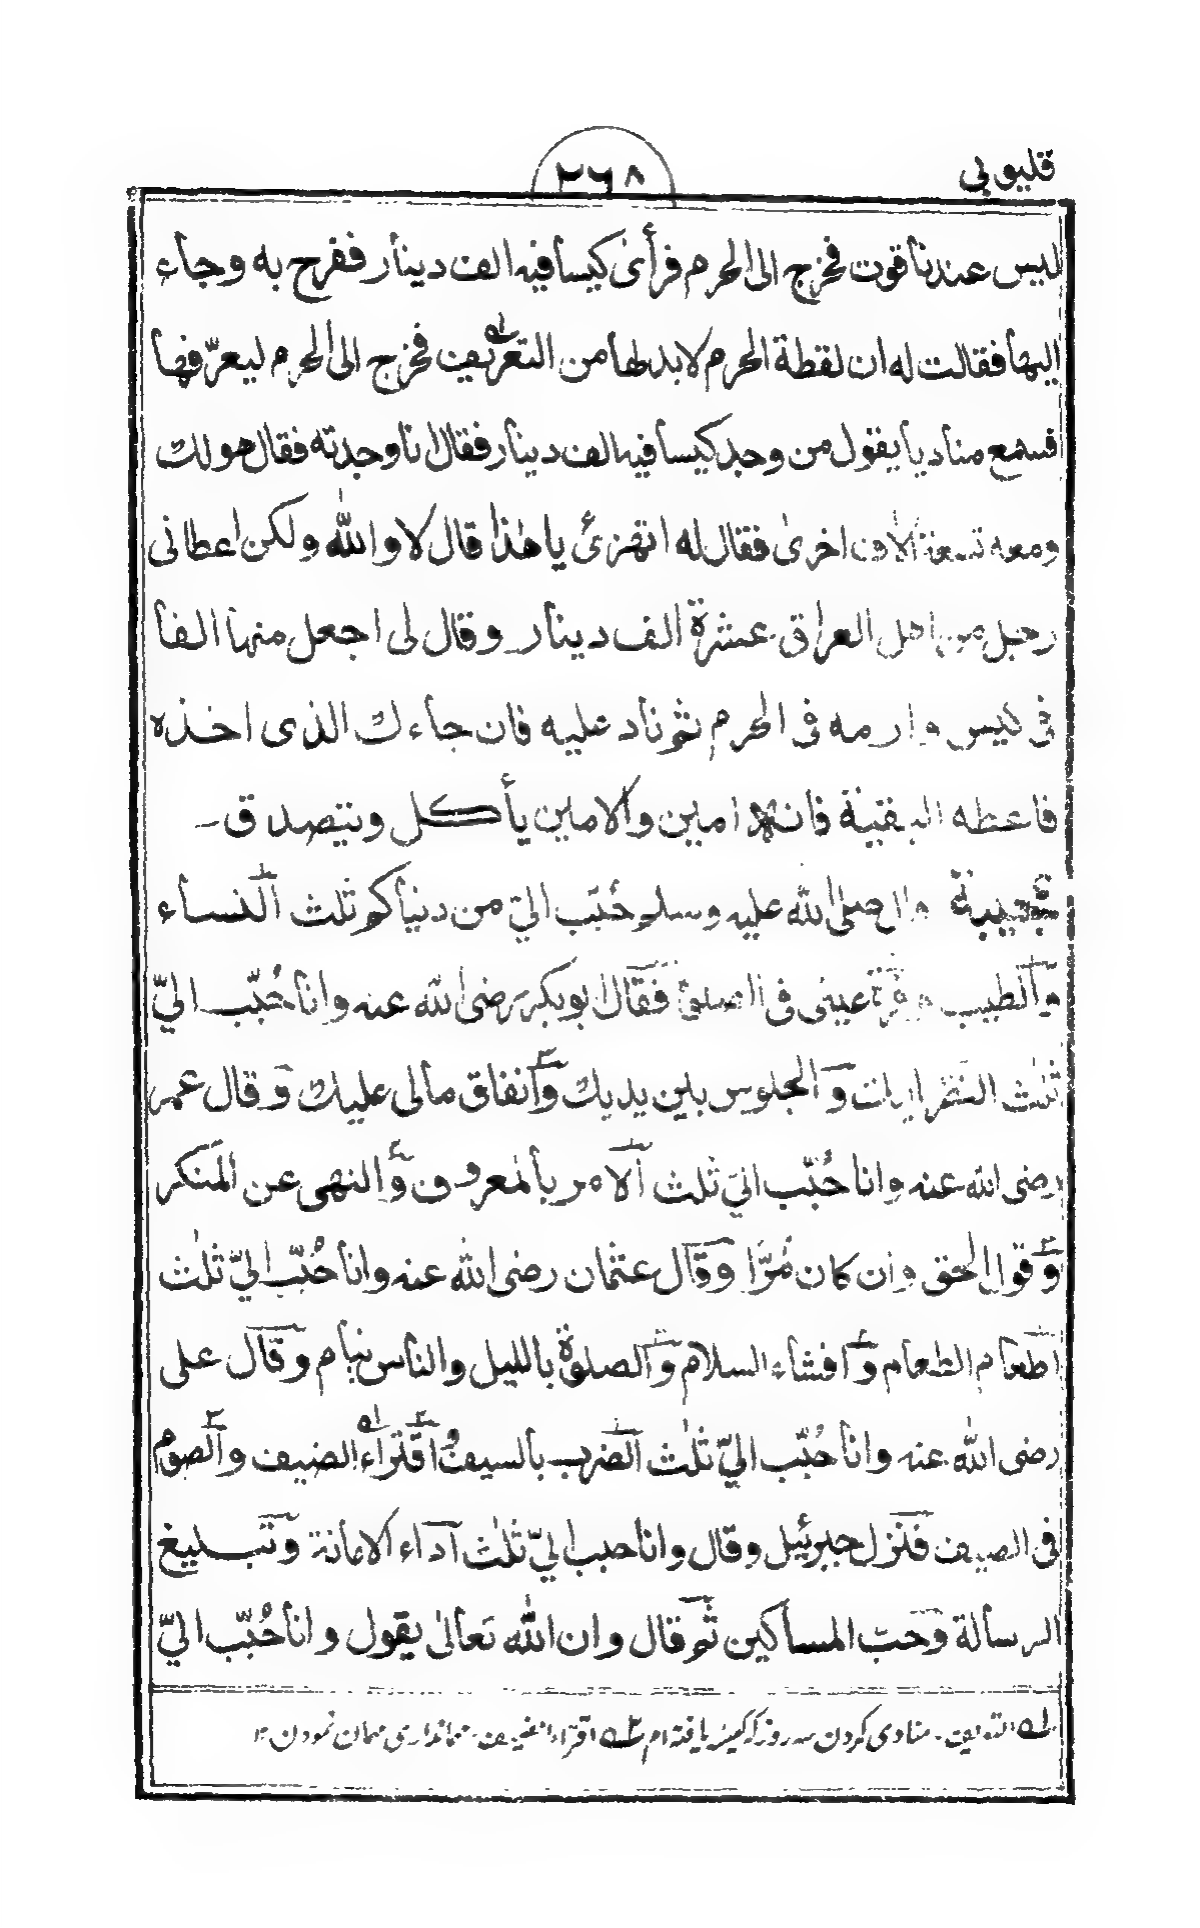 قليوبي
٢٦٨
ليس عندنا قوت فخرج الى الحرم فرأى كيسا فيه الف دينار ففرح به وجاء
اليها فقالت له ان لقطة الحرم لابد لها من التعريف فخرج الى الحرم ليعرّفها
فسمع مناديا يقول من وجد كيسا فيه الف دينار فقال انا وجدته فقال هو لك
ومعه تسعة الاف اخرى فقال له اتهزئ يا هذا قال لا والله ولكن اعطانى
رجل من اهل العراق عشرة الف دينار وقال لى اجعل منها الفا
فى كيس وارمه فى الحرم ثم ناد عليه فان جاءك الذى اخذه
فاعطه البقية فانه امين والامين يأكل ويتصدق
عجيبة قال صلى الله عليه وسلم حُبّب اليّ من دنياكم ثلث النساء
والطيب وقرة عينى فى الصلوة فقال ابوبكر رضى الله عنه وانا حُبّب اليّ
ثلث النظر اليك والجلوس بين يديك وانفاق مالى عليك وقال عمر
رضى الله عنه وانا حُبّب اليّ ثلث الامر بالمعروف والنهى عن المنكر
وقول الحق وان كان مُرّا وقال عثمان رضى الله عنه وانا حُبّب اليّ ثلث
اطعام الطعام وافشاء السلام والصلوة بالليل والناس نيام وقال على
رضى الله عنه وانا حُبّب اليّ ثلث الضرب بالسيف واقتراء الضيف والصوم
فى الصيف فنزل جبرئيل وقال وانا حبب اليّ ثلث آداء الامانة وتبليغ
الرسالة وحبّ المساكين ثم قال وان الله تعالى يقول وانا حُبّب اليّ
له التعريف منادى كردن سه روز كه كيسه يافته ام له اقتراء الضيف مهماندارى مهمان نمودن ١٢